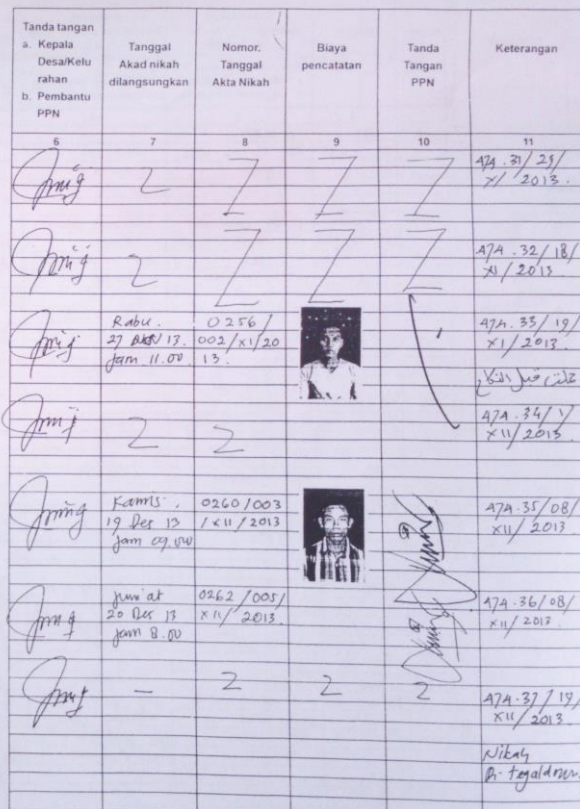 Tanda tangan
a. Kepala
Desa/Kelu
rahan
b. Pembantu
PPN
Tanggal
Akad nikah
dilangsungkan
Nomor.
Tanggal
Akta Nikah
Biaya
pencatatan
Tanda
Tangan
PPN
Keterangan
6 7 8 9 10 11
474.31/29/
XI/2013.
474.32/18/
XI/2013
Rabu.
27 Nov 13.
Jam 11.00
0256/
002/XI/20
13.
474.33/19/
XI/2013.
474.34/1/
XII/2013
Kamis.
19 Des 13
Jam 09.00
0260/003
/XII/2013
474.35/08/
XII/2013.
Jum'at
20 Des 13
Jam 8.00
0262/005/
XII/2013.
474.36/08/
XII/2013
474.37/19/
XII/2013.
Nikah